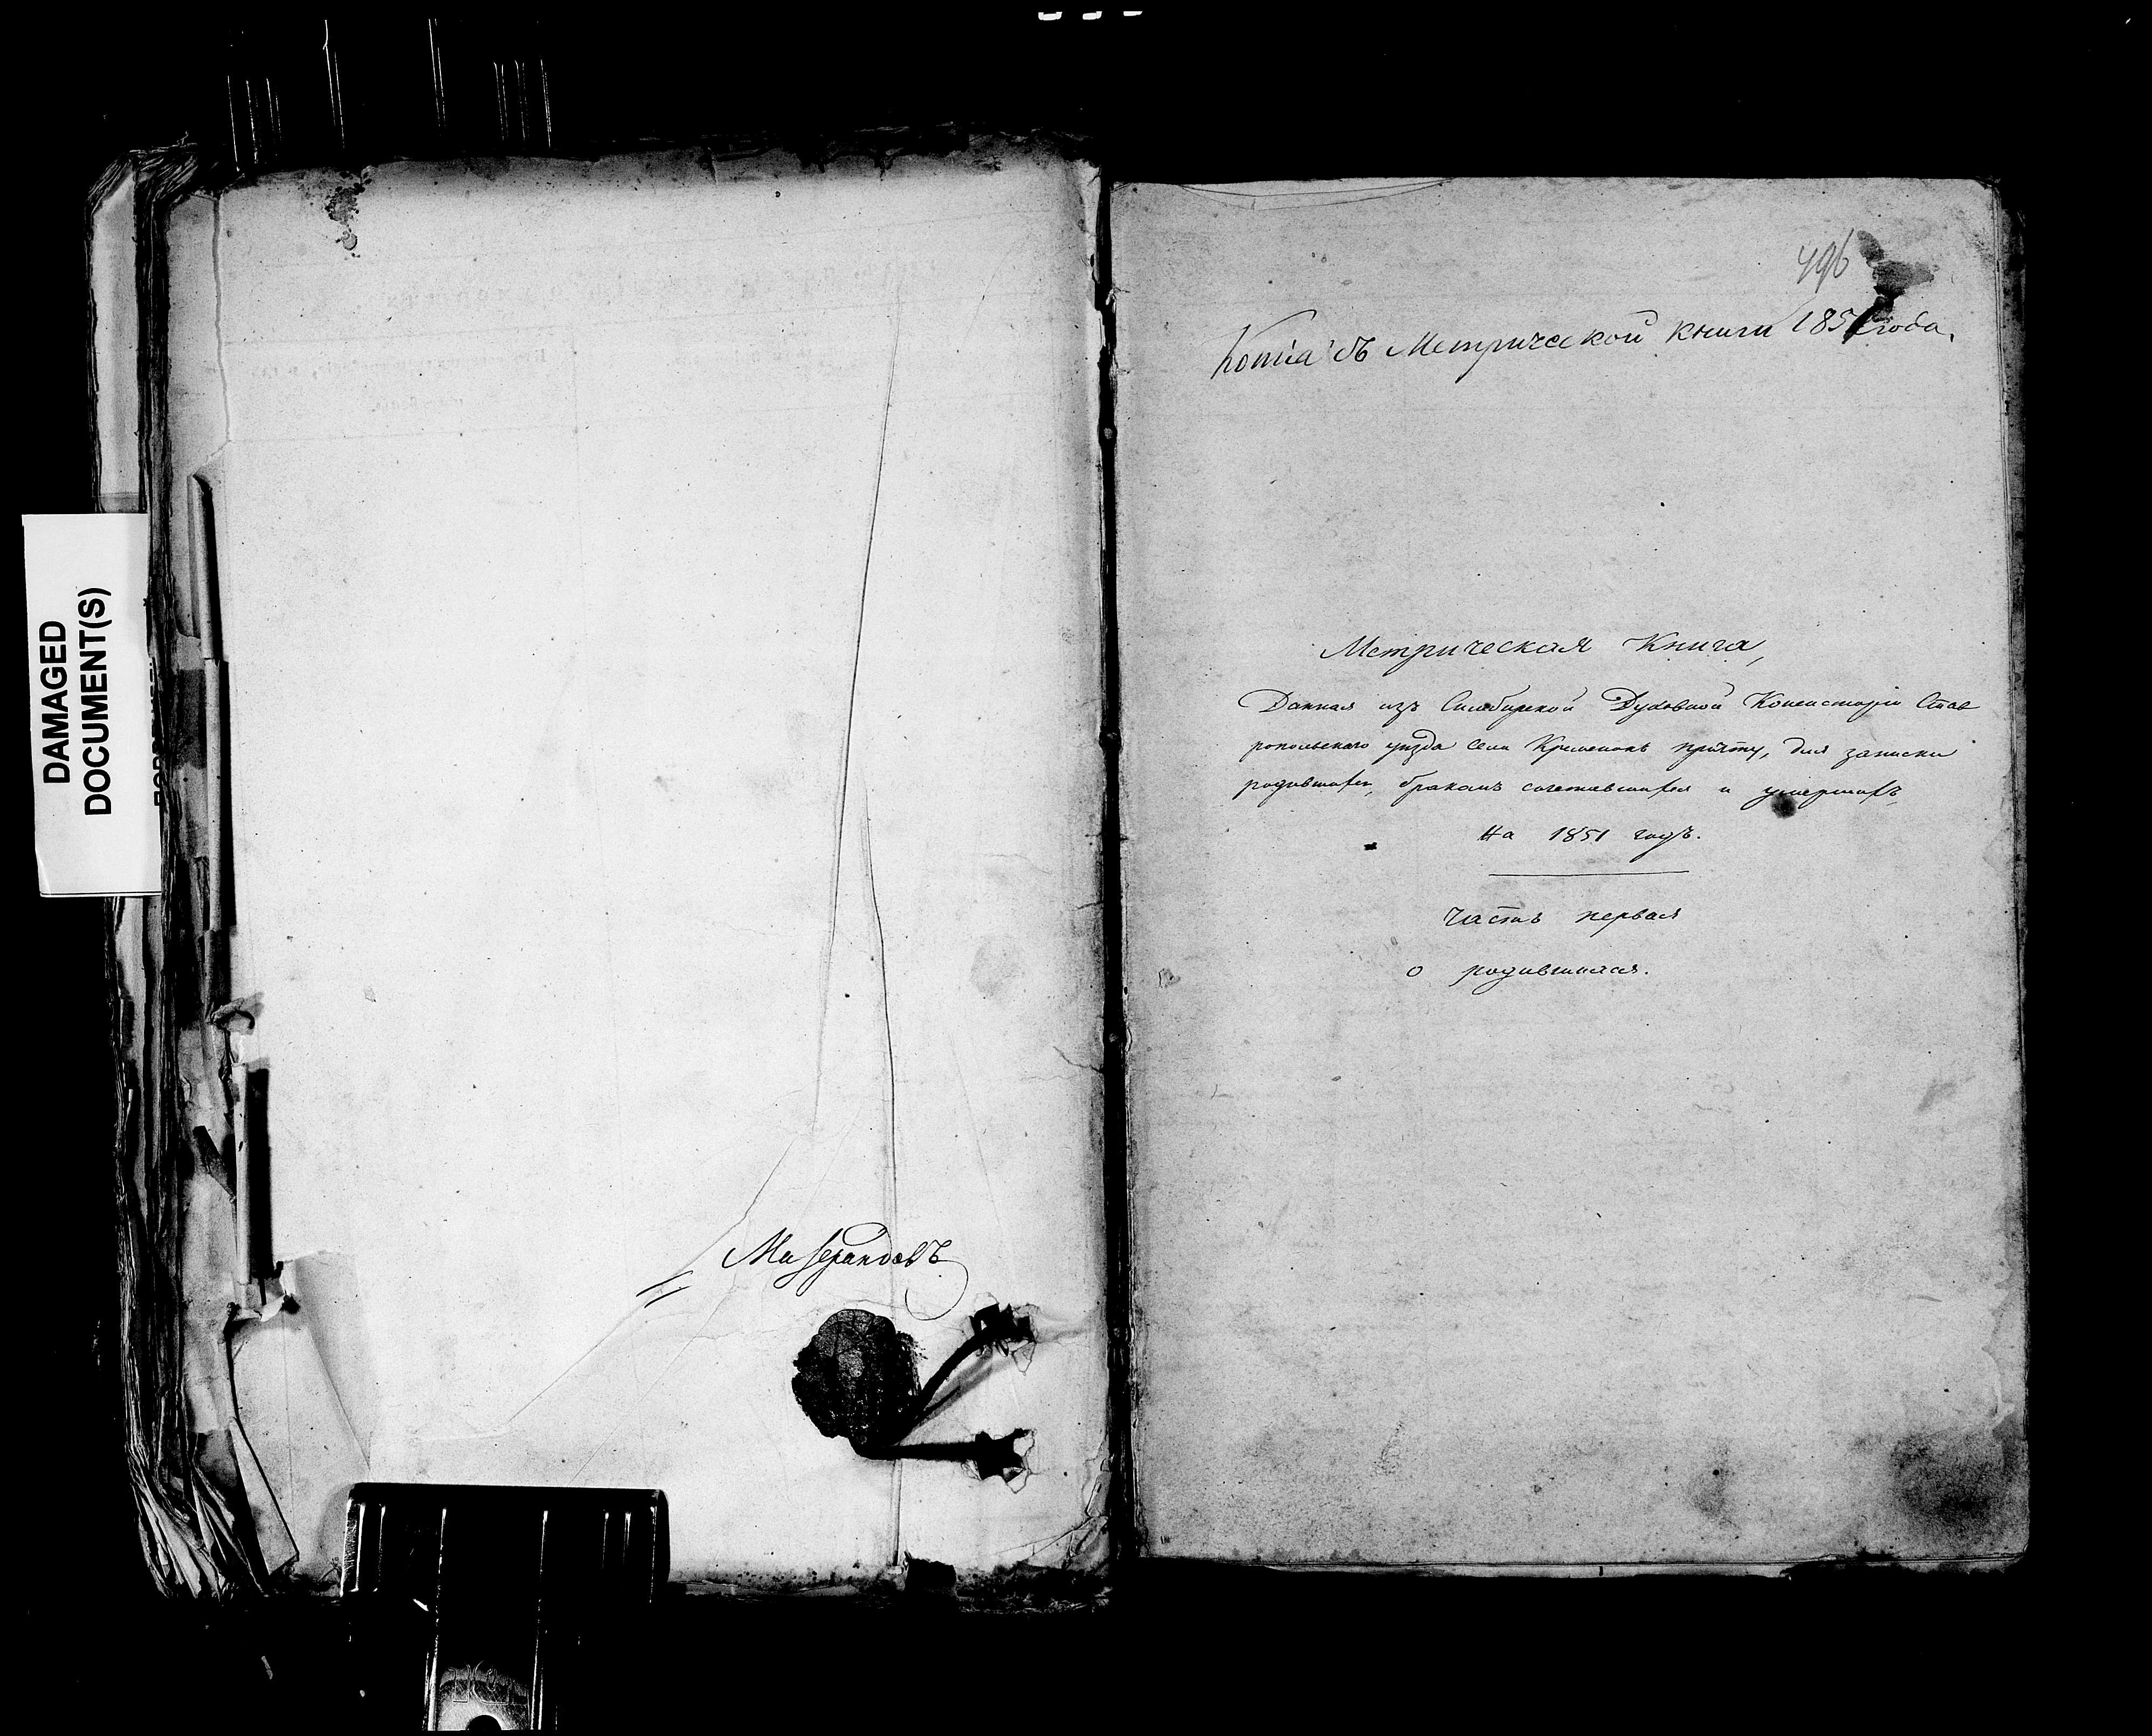 DAMAGED
DOCUMENT(S)
Мизерандовъ
496
Копіа съ Метрической книги 1851 года.
Метрическая Книга,
Данная изъ Симбирской Духовной Консисторіи Став
ропольскаго уѣзда села Кременокъ причту, для записки
родившихся, бракомъ сочетавшихся и умершихъ,
На 1851 годъ.
Часть первая
о родившихся.